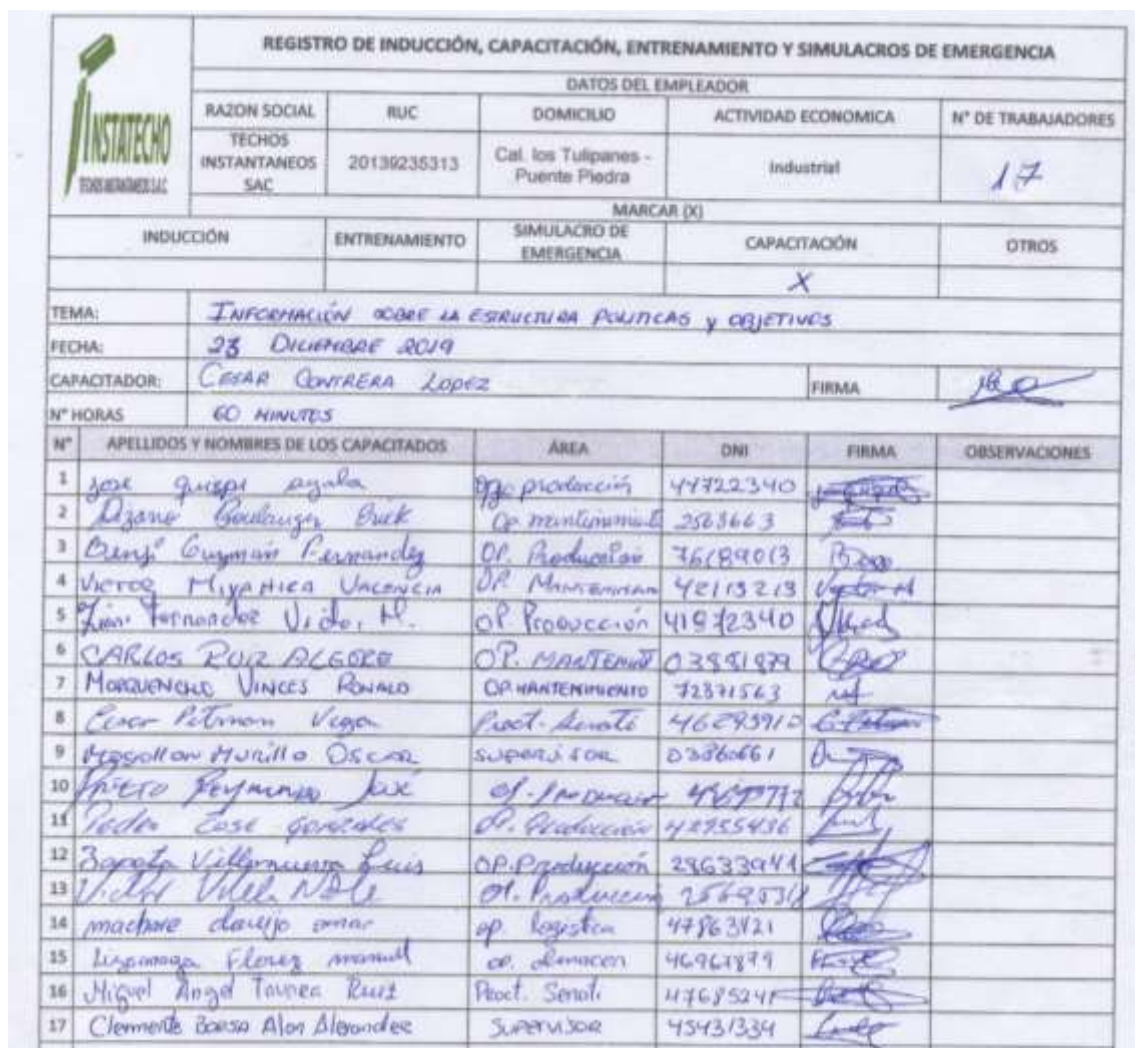 REGISTRO DE INDUCCIÓN, CAPACITACIÓN, ENTRENAMIENTO Y SIMULACROS DE EMERGENCIA
DATOS DEL EMPLEADOR
INSTATECHO
RAZON SOCIAL RUC DOMICILIO ACTIVIDAD ECONOMICA N° DE TRABAJADORES
TECHOS INSTANTANEOS SAC 20139235313 Cal. los Tulipanes - Puente Piedra Industrial 17
MARCAR (X)
INDUCCIÓN ENTRENAMIENTO SIMULACRO DE EMERGENCIA CAPACITACIÓN OTROS
X
TEMA: INFORMACIÓN SOBRE LA ESTRUCTURA POLITICAS y OBJETIVOS
FECHA: 23 DICIEMBRE 2019
CAPACITADOR: CESAR CONTRERA LOPEZ FIRMA
N° HORAS 60 MINUTOS
N° APELLIDOS Y NOMBRES DE LOS CAPACITADOS ÁREA DNI FIRMA OBSERVACIONES
1 jose quispe ayala producción 44722340
2 Erick Op. 2563663
3 Guzmán Fernandez OP. Producción 76189013
4 VICTOR VALENCIA OP. 42113213
5 Fernandez OP Producción 41972340
6 CARLOS RUIZ OP. 03881879
7 VINCES RONALD OP. MANTENIMIENTO 72371563
8 Vega Pract. Senati 46295910
9 Mogollon Murillo Oscar SUPERVISOR 03860661
10 Reymundo José
11 Jose Gonzales OP. Producción 42955436
12 Zapata Villanueva Luis OP. Producción 28633941
13 Victor OP. Produccion
14 omar op. logistica 47863421
15 Florez manuel op. almacen 46967879
16 Miguel Angel Ruiz Pract. Senati 47685241
17 Clemente Alan Alexander SUPERVISOR 45431334